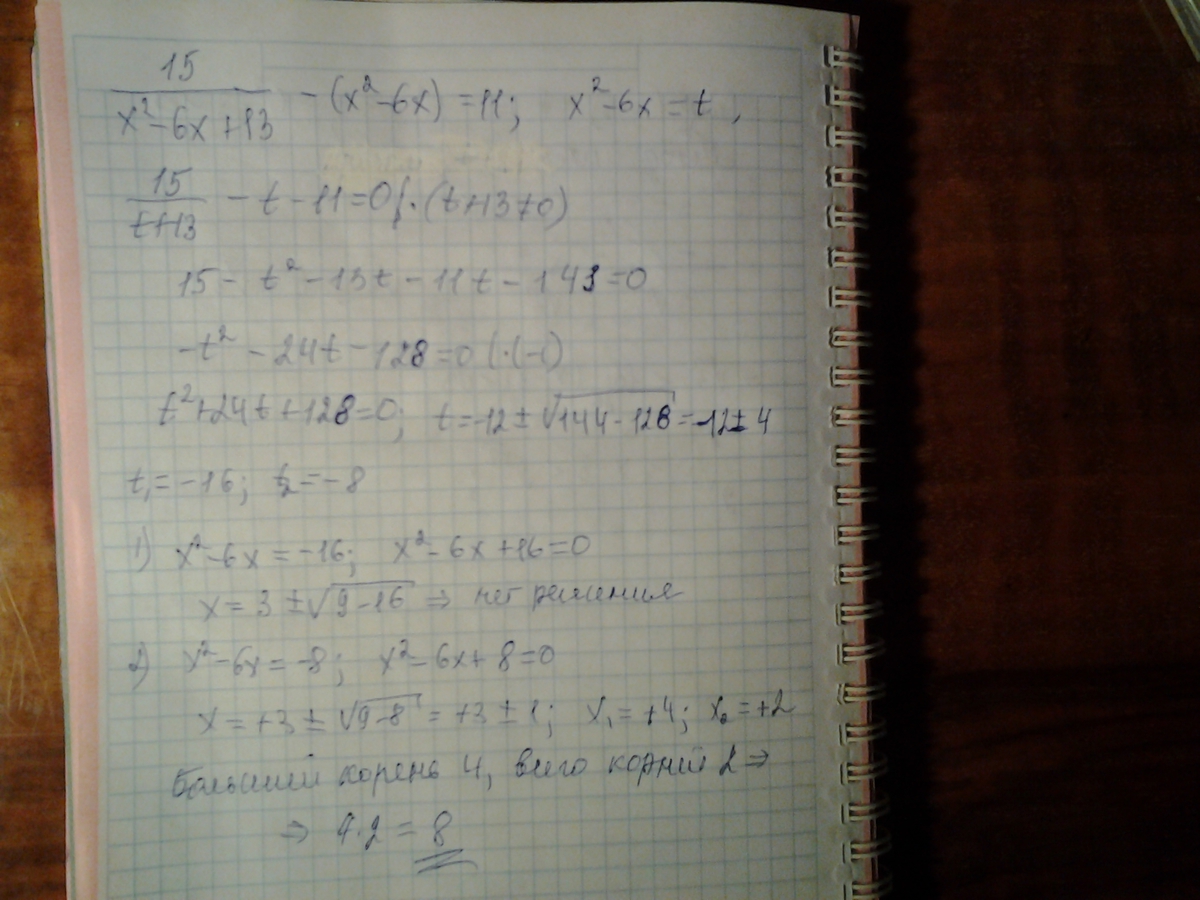 15
x² - 6x + 13 - (x² - 6x) = 11; x² - 6x = t,
15
t+13 - t - 11 = 0 |·(t+13≠0)
15 - t² - 13t - 11t - 143 = 0
-t² - 24t - 128 = 0 |·(-1)
t² + 24t + 128 = 0; t = -12 ± √144 - 128 = -12 ± 4
t₁ = -16; t₂ = -8
1) x² - 6x = -16; x² - 6x + 16 = 0
x = 3 ± √9 - 16 ⇒ нет решения
2) x² - 6x = -8; x² - 6x + 8 = 0
x = +3 ± √9 - 8 = +3 ± 1; x₁ = +4; x₂ = +2
больший корень 4, всего корней 2 ⇒
⇒ 4·2 = 8